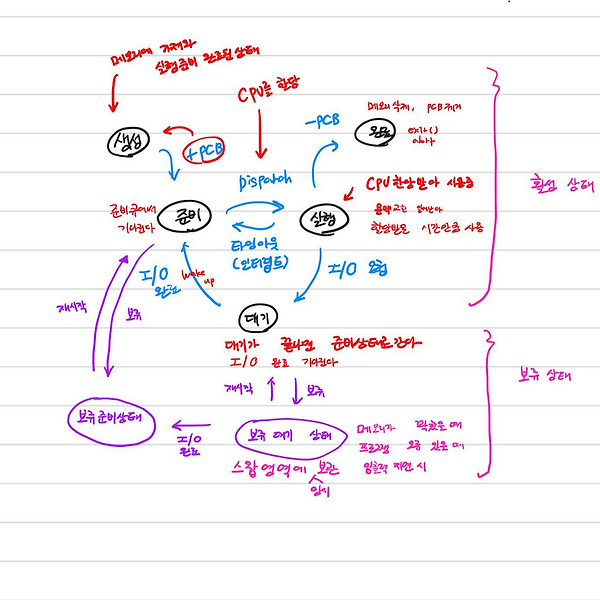 메모리에 가져와
실행준비 완료된 상태
CPU를 할당
생성
+PCB
-PCB
완료
메모리 삭제, PCB 제거
exit()
abort
Dispatch
준비큐에서
기다린다
준비
실행
CPU 할당받아 사용중
할당받은 시간만큼 사용
타임아웃
(인터럽트)
활성 상태
I/O
완료
wake
up
I/O 요청
재시작
보류
대기
대기가 끝나면 준비상태로 간다
I/O 완료 기다린다
재시작
보류
보류 상태
보류준비상태
I/O
완료
보류 대기 상태
메모리가 꽉 찼을 때
프로그램 오류 있을 때
입출력 지연 시
스왑영역에 보관
임시